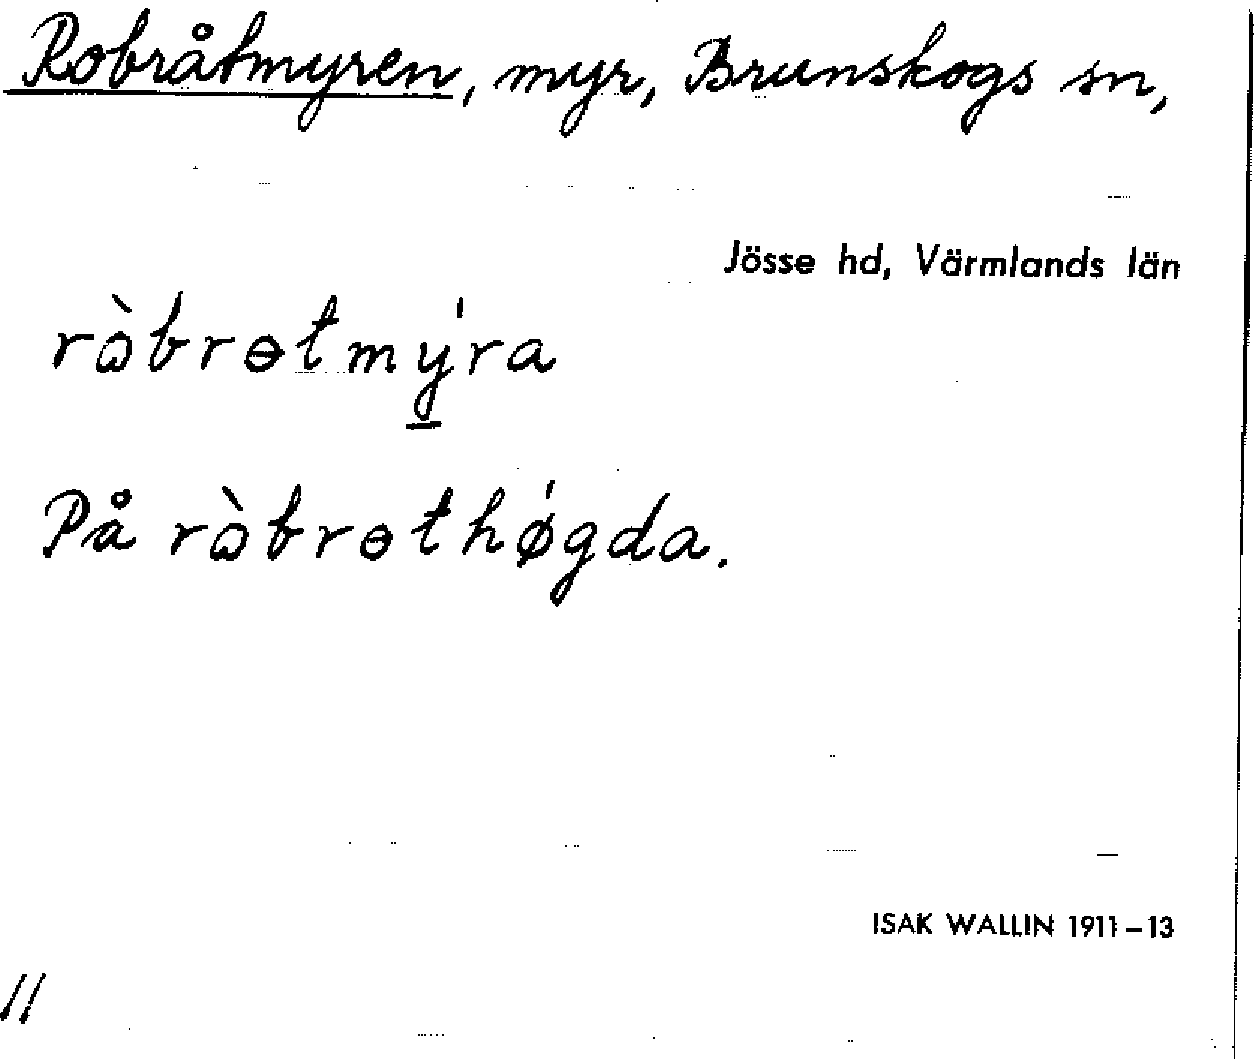 Robråtmyren, myr, Brunskogs sn,
Jösse hd, Värmlands län
rὼbrɵtmý̲ra
På rὼbrɵthǿgda.
ISAK WALLIN 1911–13
11